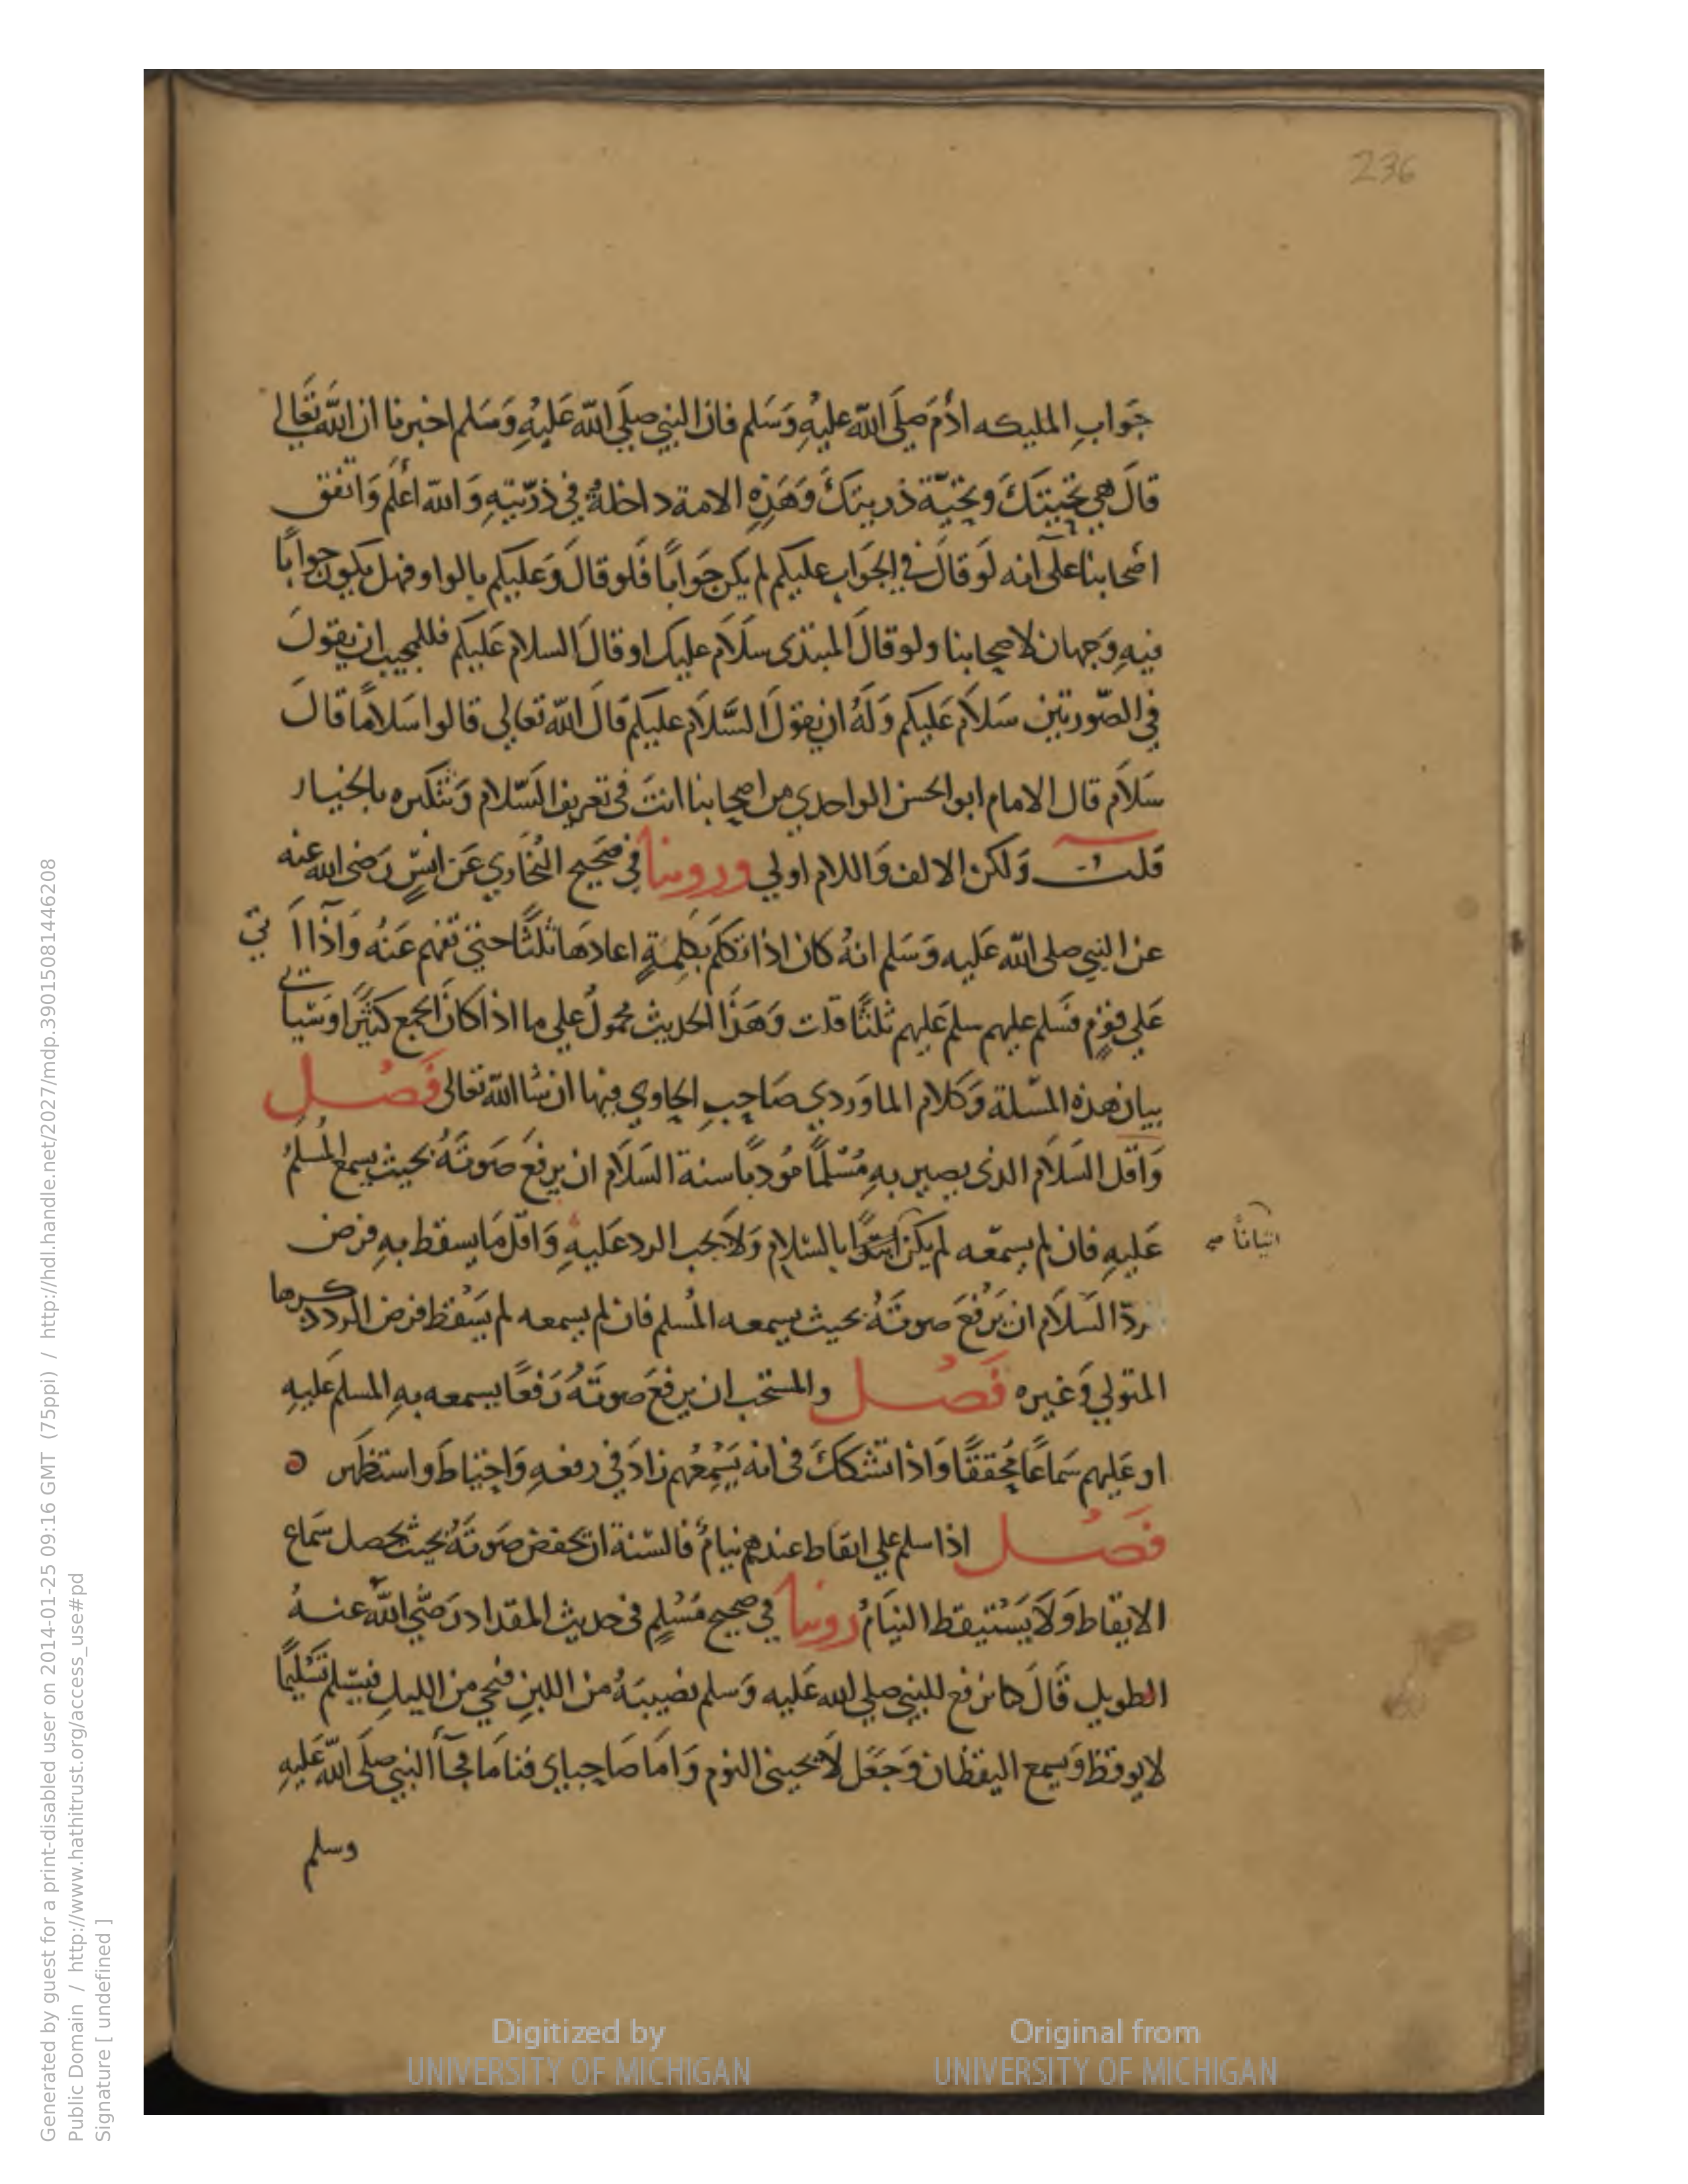 236
جَوابِ المليكه ادٔمَ صَلَى اللّه عليْهِ وَسَلم فان النبي صلَى اللّه عَليْهِ وَسَلم اخبرنا ان اللّه تَعَالى
قالَ هي تحيتكَ وتحيّة ذريتكَ وَهَذِهِ الامة داخلةٌ في ذرّيتهِ وَاللّه اعْلَم وَاتفق
اصْحابنا على انه لَو قالَ في الجَوابِ عليكم لم يكن جَوابًا فَلو قالَ وَعَليكم بالواو فهل يكون جوابًا
فيهِ وَجهان لاصحابنا ولو قالَ المبتدى سلَام عليك او قالَ السلام عَليكم فللمجيب ان يقولَ
في الصّورتين سَلاَم عَليكم وَلَهُ ان يقولَ السَّلاَم عليكم قالَ اللّه تعالى قالوا سَلامًا قالَ
سَلاَم قال الامام ابو الحسن الواحدي من اصحابنا انتَ في تعريف السّلام وَتنكيره بالخيار
قلت وَلكن الالف وَاللام اولى وروينا في صَحيح البُخَاري عَن انسٍ رَضى الله عنه
عن النبي صلى اللّه عَليه وَسَلم انهُ كان اذا تكلّم بكلمةٍ اعادهَا ثلثًا حتى تفهم عَنهُ وَاذا اَتي
عَلي قومٍ فسَلم عليهم سلم عَليهم ثلثًا قلت وَهَذا الحديث محمولٌ علي ما اذا كانَ الجمع كثيرًا وسَياتي
بيان هذه المسْلة وَكلام الماوَردي صَاحِبِ الحاوي فيها ان شا اللّه تعالى فَصْل
وَاقل السَلاَم الذى يصير بهِ مُسْلمًا مُودّيًا سنة السَلاَم ان يرفعَ صَوتَهُ بحيث يسمع المُسلمُ
عَليهِ فان لم يسمعه لم يكن ابتدًا بالسّلامِ وَلاَ يجب الرد عَليهِ وَاقل مَا يسقط بهِ فرض
اتيانًا صح
ردّ السَلاَم ان يَرْفَعَ صوتَهُ بحيث يسمعه المُسلم فان لم يسمعه لم يَسْقط فرض الرد ذكرهما
المتولي وَغيره فَصْل والمستحب ان يرفعَ صوتَهُ رَفعًا يسمعه بهِ المسلم عَليهِ
او عَليهم سَماعًا مُحققًا وَاذا تشككَ في انه يُسْمِعُهم زادَ في رفعهِ وَاحتَاطَ واستظهَر ٥
فَصْل اذا سلم علي ايقاظ عندهم نيامٌ فالسّنة ان يخفض صَوتَهُ بحيث يحصل سَماع
الايقاظ وَلاَ يَسْتيقظ النيَامُ روينا في صحيح مُسْلِمٍ في حديث المقداد رَضي اللّه عنهُ
الطويل قَالَ كنا نرفع للنبي صلي الله عَليه وَسلم نصيبَهُ من اللبنِ فيجي من الليلِ فيسَلم تَسْليمًا
لا يوقظ وَيسمع اليقظان وَجَعَل لاَ يجيني النوم وَامَا صَاحِباي فنامَا فجآ النبي صلَى اللّه عَليهِ
وسلم
Digitized by
UNIVERSITY OF MICHIGAN
Original from
UNIVERSITY OF MICHIGAN
Generated by guest for a print-disabled user on 2014-01-25 09:16 GMT (75ppi) / http://hdl.handle.net/2027/mdp.39015081446208
Public Domain / http://www.hathitrust.org/access_use#pd
Signature [ undefined ]